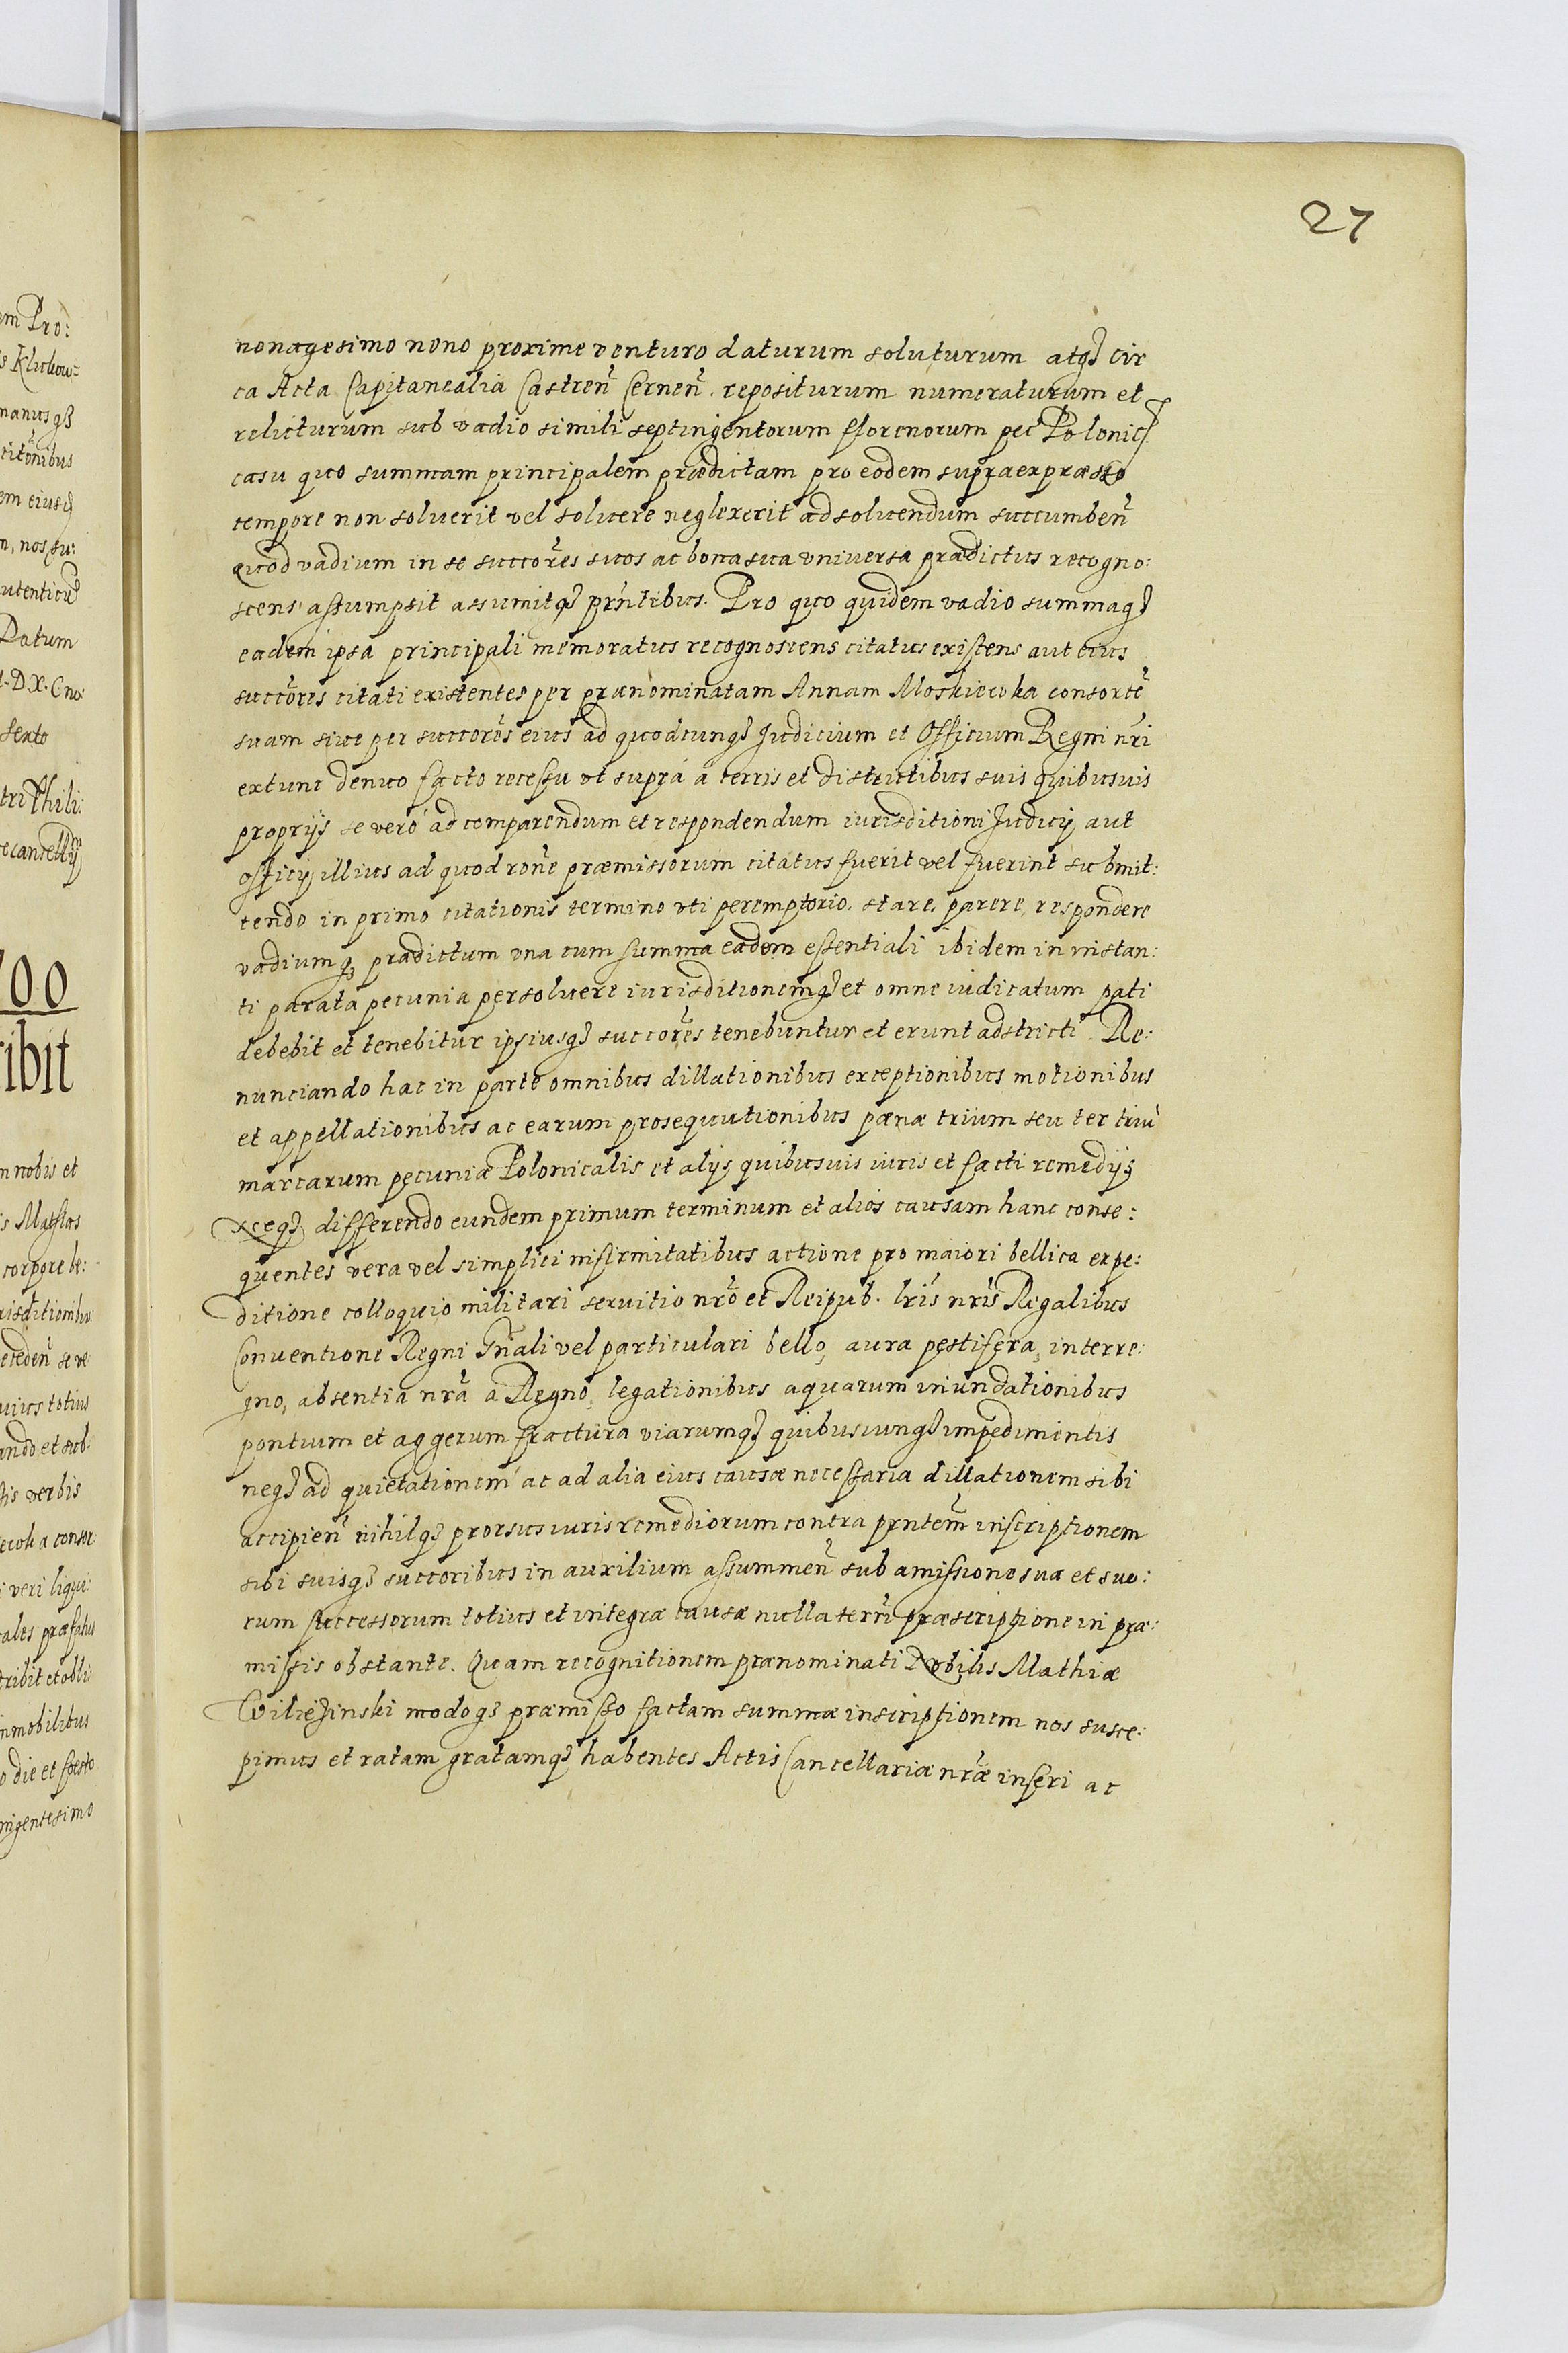 27
nonagesimo nono proxime venturo daturum soluturum atqȝ cir
ca Acta Capitanealia Castren̄ Cernen̄. repositurum numeraturum et
relicturum sub vadio simili septingentorum fflorenorum pec̄ Polonic̄.
casu quo summam principalem prædictam pro eodem supraexpræsto
tempore non soluerit vel soluere neglexerit ad soluendum succumben̄
quod vadium in se succor̄es suos ac bona sua vniversa prædictus recogno:
scens assumpsit assumitqȝ prn̄tibus. Pro quo quidem vadio summaqȝ
eadem ipsa principali memoratus recognoscens citatus existens aut eius
succor̄es citati existentes per prænominatam Annam Moskiewka consortē
suam siue per succorēs eius ad quodcunqȝ Judicium et Officium Regni nr̄i
extunc denuo facto recessu vt supra a terris et districtibus suis quibusuis
proprijs se vero ad comparendum et respondendum iurisditioni Judicij aut
officij illius ad quod ron̄e præmissorum citatus fuerit vel fuerint submit:
tendo in primo citationis termino vti peremptorio. stare, parere, respondere
vadiumqȝ prædictum vna cum summa eadem essentiali ibidem in instan:
ti parata pecunia persoluere iurisditionemqȝ et omne iudicatum pati
debebit et tenebitur ipsiusqȝ succor̄es tenebuntur et erunt adstricti. Re:
nunciando hac in parte omnibus dillationibus exceptionibus motionibus
et appellationibus ac earum prosequutionibus pænæ trium seu ter triū
marcarum pecuniæ Polonicalis et alijs quibusuis iuris et facti remedijs
Neqȝ differendo eundem primum terminum et alios causam hanc conse:
quentes vera vel simplici infirmitatibus actione pro maiori bellica expe:
ditione colloquio militari seruitio nr̄o et Reipub. lr̄is nr̄is Regalibus
Conuentione Regni Gn̄ali vel particulari bello, aura pestifera, interre:
gno, absentia nr̄a a Regno, legationibus aquarum inundationibus
pontium et aggerum fractura viarumqȝ quibuscunqȝ impedimentis
neqȝ ad quietationem ac ad alia eius causæ necessaria dillationem sibi
accipien̄ nihilqȝ prorsus iuris remediorum contra prntem̄ inscriptionem
sibi suisqȝ succoribus in auxilium assummen̄ sub amissione suæ et suo:
rum successorum totius et integræ causæ nulla terr̄i præscriptione in præ:
missis obstante. Quam recognitionem prænominati Nobilis Mathiæ
Wilieżinski modoqȝ præmisso factam summæ inscriptionem nos susce:
pimus et ratam gratamqȝ habentes Actis Cancellariæ nr̄æ inseri ac